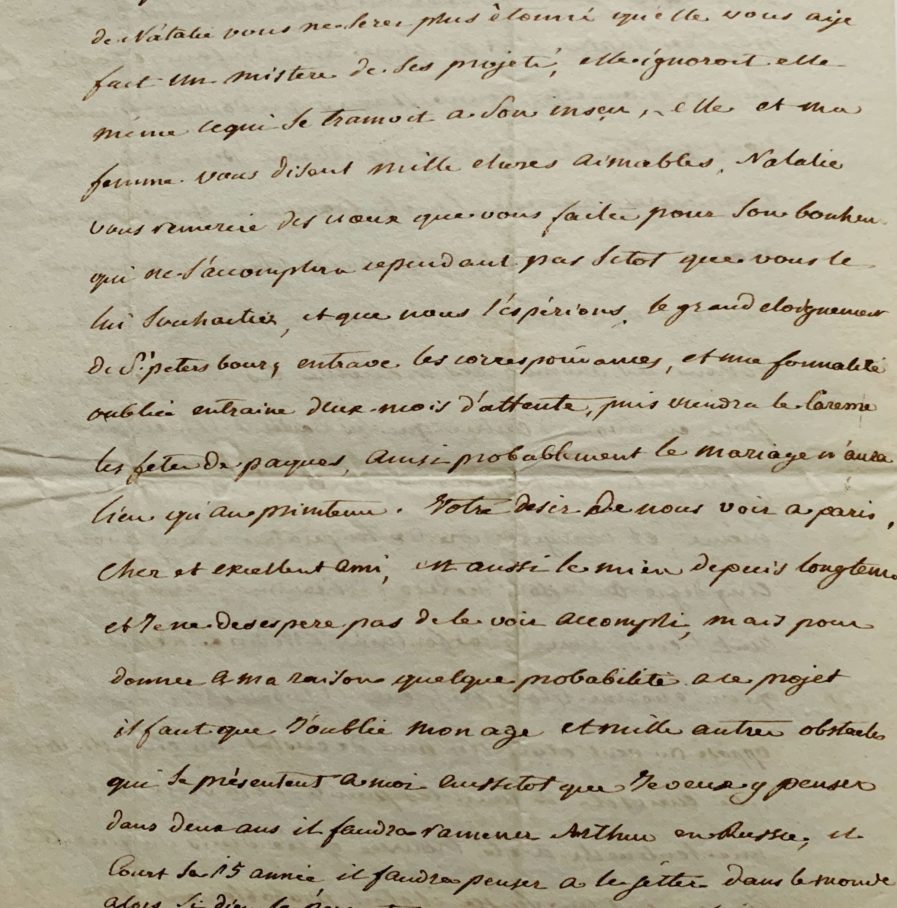 de Natalie vous ne serez plus étonné qu'elle vous aije
fait un mistere de ses projets, elle ignoroit elle
même ce qui se tramoit a son insçu, elle et ma
femme vous disent mille choses aimables, Natalie
vous remercie des vœux que vous faites pour son bonheur
qui ne s'accomplira cependant pas sitot que vous le
lui souhaitiez, et que nous l'éspérions, le grand eloignement
de St petersbourg entrave les correspondances, et une formalité
oubliée entraine deux mois d'attente, puis viendra le Careme
les fetes de paques, ainsi probablement le mariage n'aura
lieu qu'au printems. Votre desir de nous voir a paris,
cher et excellent ami, est aussi le mien depuis longtems
et Je ne desespere pas de le voir accompli, mais pour
donner a ma raison quelque probabilité a ce projet
il faut que J'oublie mon age et mille autres obstacles
qui se présentent a moi aussitot que Je veux y penser
dans deux ans il faudra ramener Arthur en Russie, il
Court sa 15 année il faudra penser a le jetter dans le monde
alors si dieu le